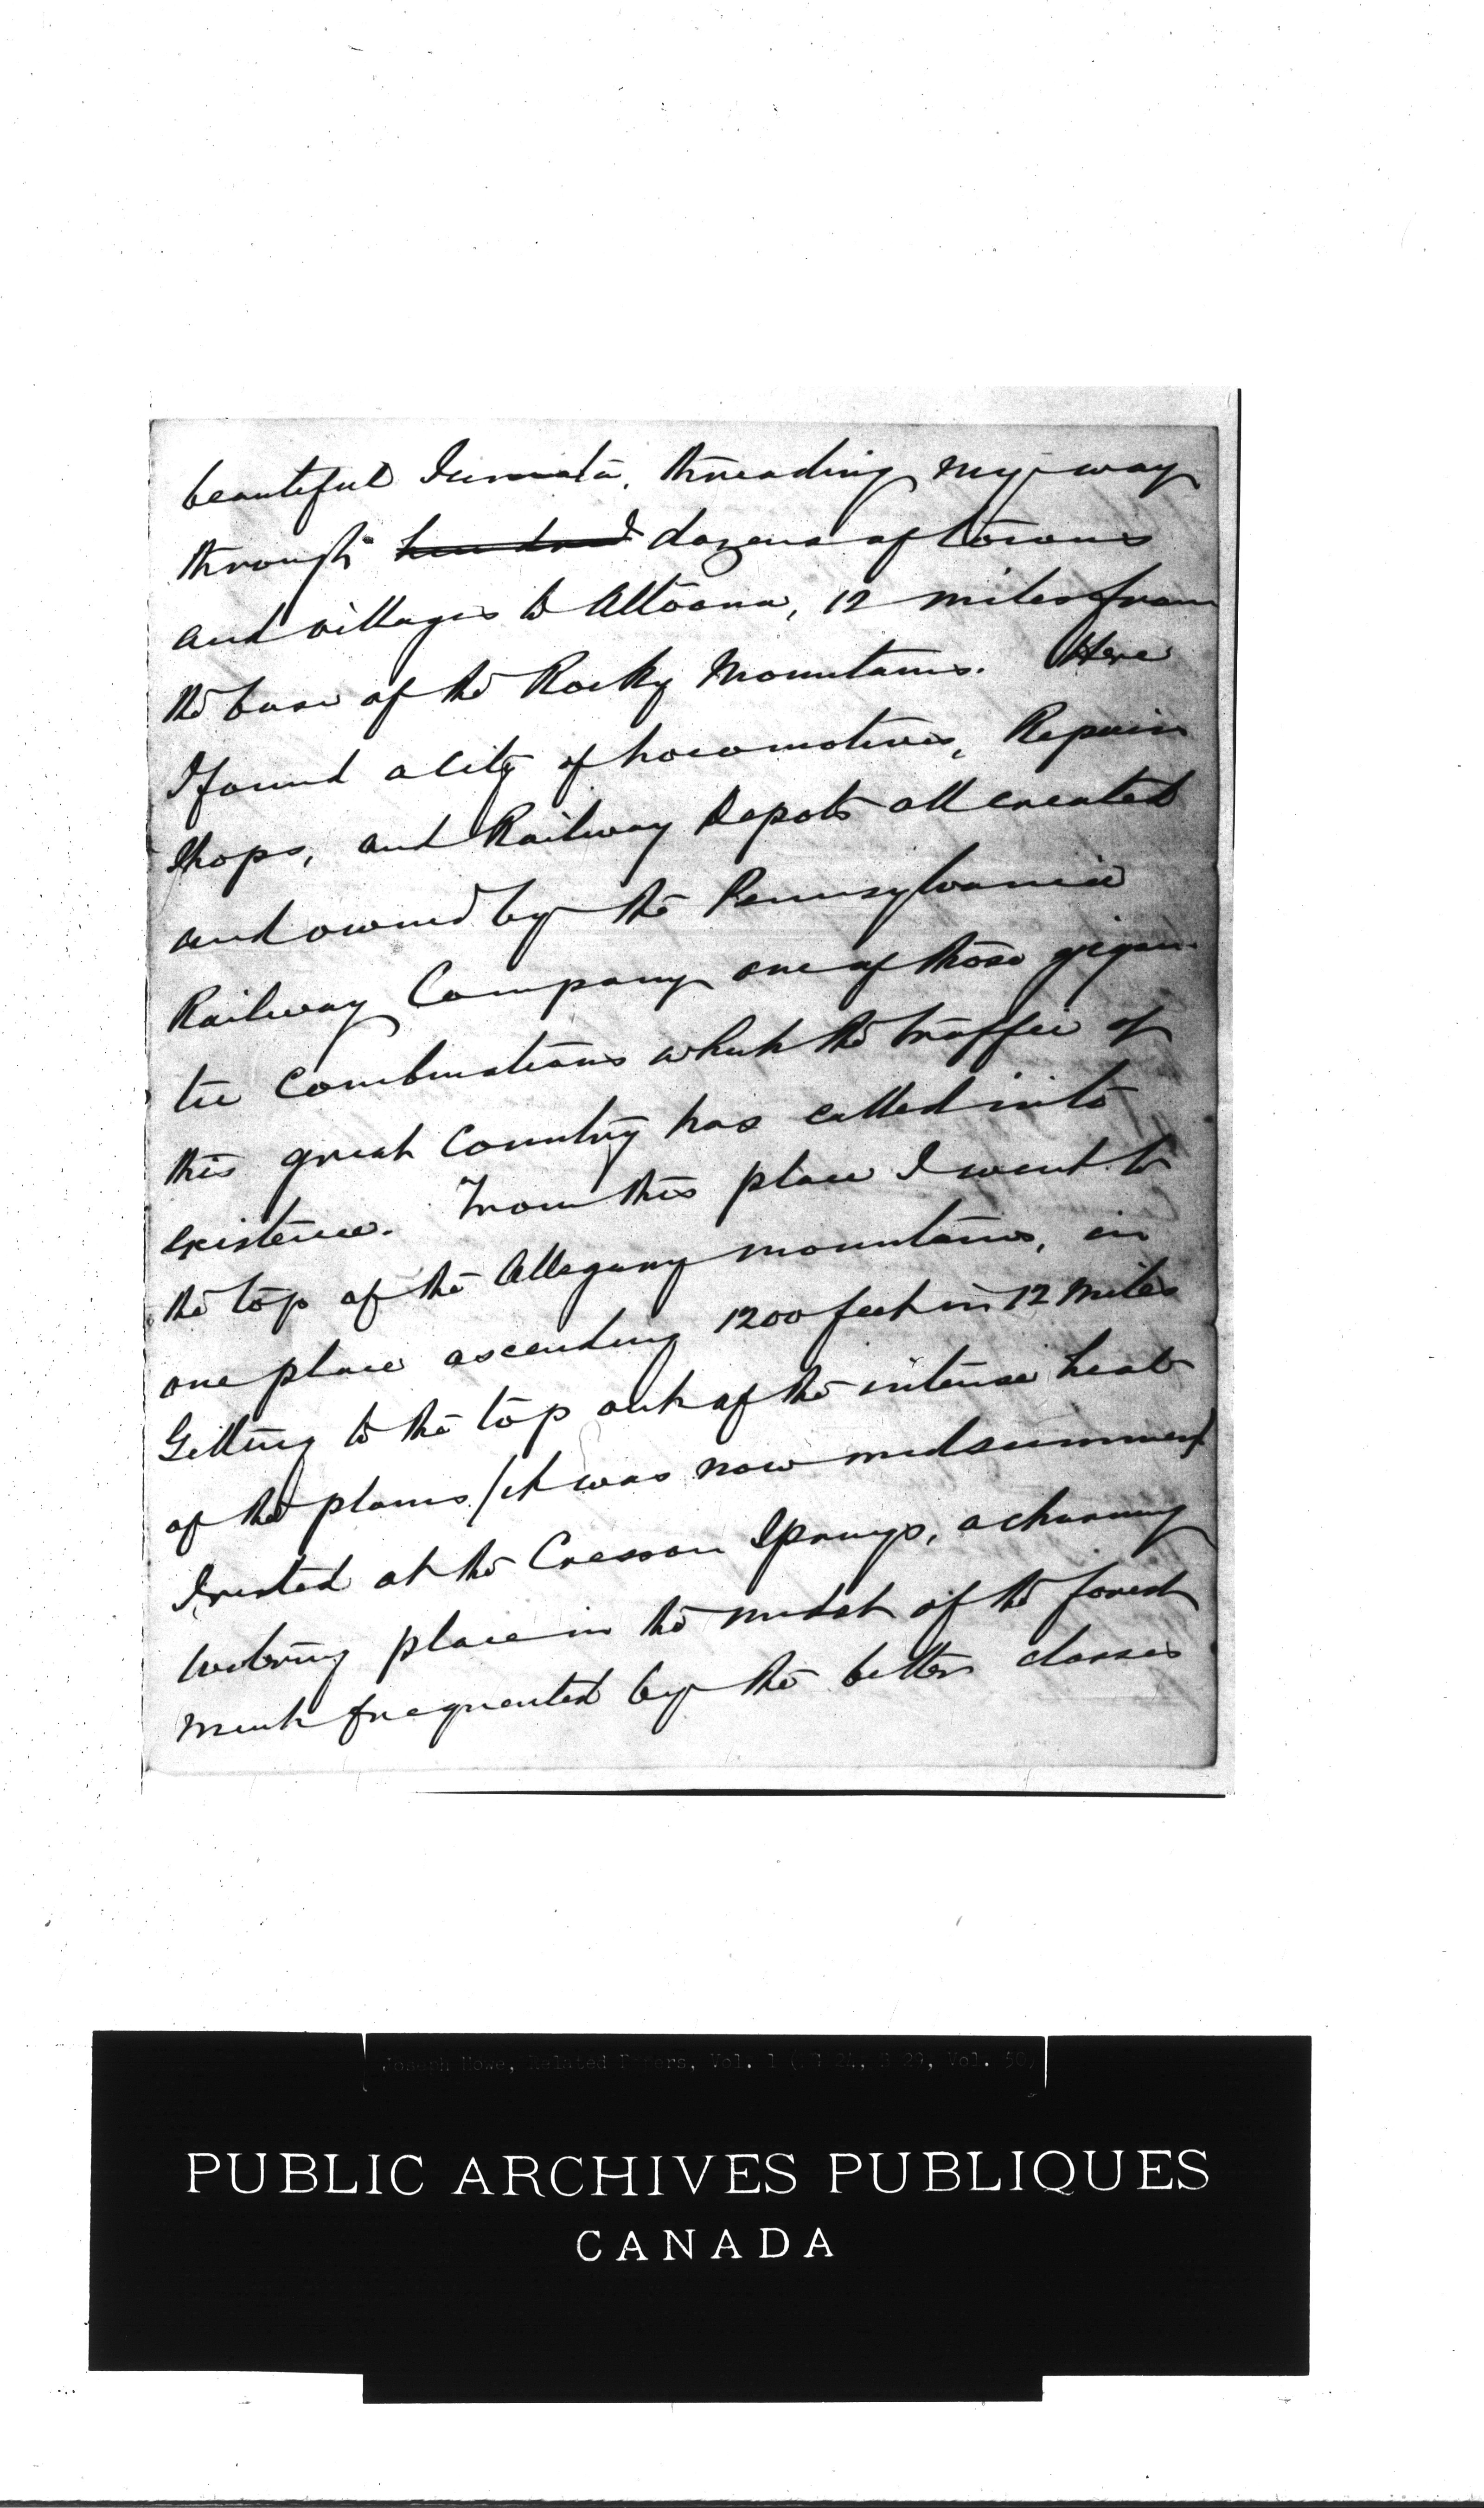 beautiful Juniata, threading my way
through hundred dozens of towns
and villages to Altoona, 12 miles from
the base of the Rocky Mountains. Here
I found a city of Locomotives, Repair
Shops, and Railway Depots all created
and owned by the Pennsylvania
Railway Company one of those gigan
tic combinations which the traffic of
this great Country has called into
existence. From this place I went to
the top of the Allegany mountains, in
one place ascending 1200 feet in 12 miles
Getting to the top out of the intense heat
of the plains (it was now midsummer)
I rested at the Cresson Springs, a charming
watering place in the midst of the forest
much frequented by the better classes
Joseph Howe, Related Papers, Vol. 1 (MG 24, B 29, Vol. 50)
PUBLIC ARCHIVES PUBLIQUES
CANADA